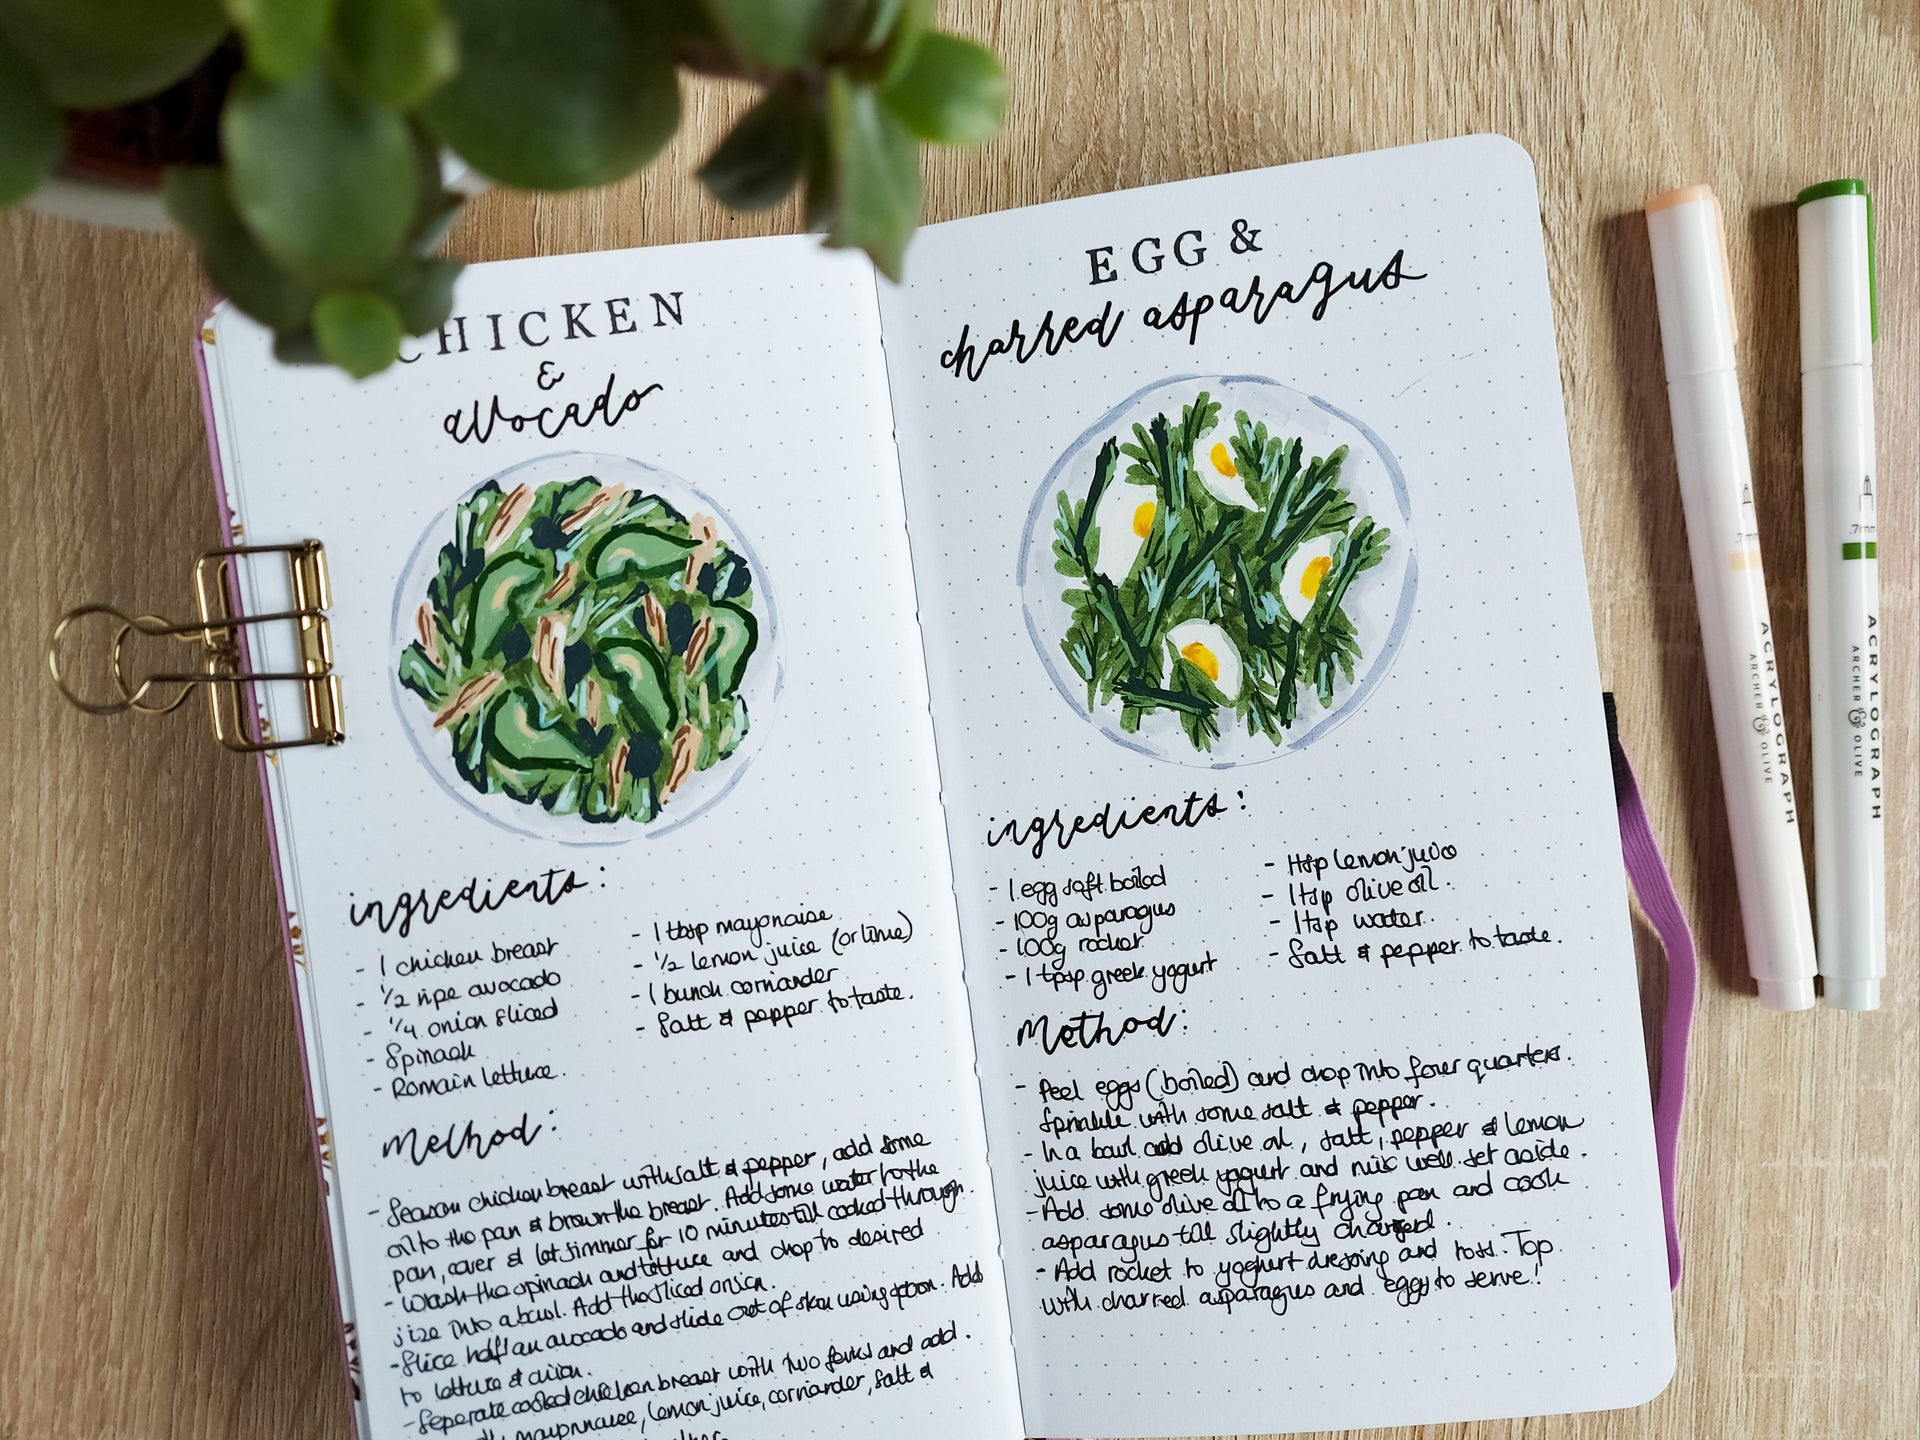 CHICKEN
&
avocado
ingredients:
- 1 chicken breast
- 1/2 ripe avocado
- 1/4 onion sliced
- Spinach
- Romain lettuce.
- 1 tbsp mayonaise
- 1/2 lemon juice (or lime)
- 1 bunch corriander
- Salt & pepper to taste.
Method:
- Season chicken breast with salt & pepper, add some
oil to the pan & brown the breast. Add some water to the
pan, cover & let simmer for 10 minutes till cooked through.
- Wash the spinach and lettuce and chop to desired
size into a bowl. Add the sliced onion.
- Slice half an avocado and slide out of skin using spoon. Add
to lettuce & onion.
- Seperate cooked chicken breast with two forks and add.
mayonnaise, lemon juice, corriander, salt &
EGG &
charred asparagus
ingredients:
- 1 egg soft boiled
- 100g asparagus
- 100g rocket
- 1 tpsp greek yogurt
- 1tsp lemon juice
- 1tsp olive oil.
- 1tsp water.
- Salt & pepper to taste.
Method:
- Peel eggs (boiled) and chop into four quarters.
Sprinkle with some salt & pepper.
- In a bowl add olive oil, salt, pepper & lemon
juice with greek yogurt and mix well. Set aside.
- Add some olive oil to a frying pan and cook
asparagus till slightly charred.
- Add rocket to yoghurt dressing and toss. Top
with charred asparagus and eggs to serve!
.7mm
ACRYLOGRAPH
ARCHER & OLIVE
.7mm
ACRYLOGRAPH
ARCHER & OLIVE